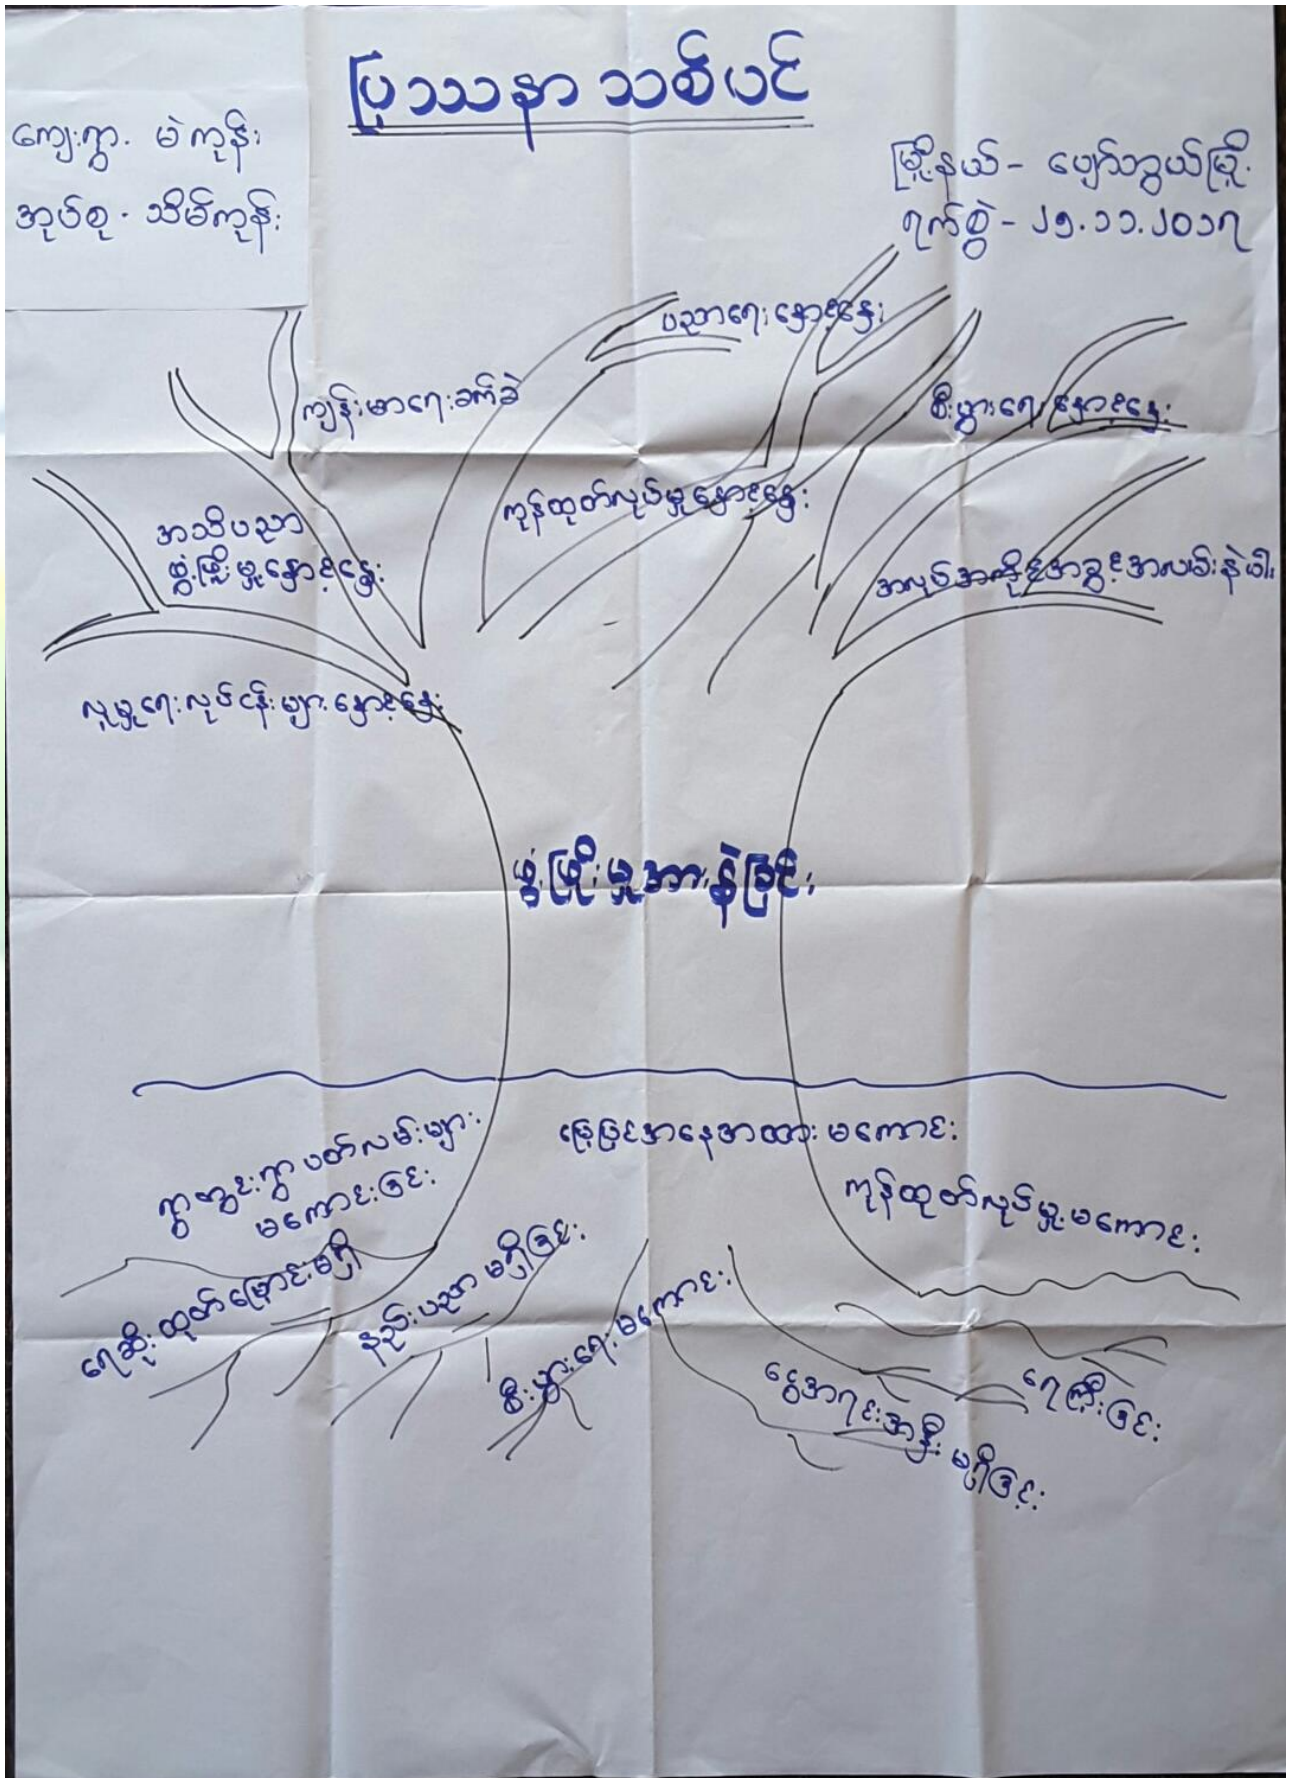 ပြဿနာ သစ်ပင်
ကျေးရွာ. မဲကုန်း
အုပ်စု. သိမ်ကုန်း
မြို့နယ် - ပျော်ဘွယ်မြို့.
ရက်စွဲ - ၂၅.၁၁.၂၀၁၇
ပညာရေးနှောင့်နှေး
ကျန်းမာရေးခက်ခဲ
စီးပွားရေးနှောင့်နှေး
ကုန်ထုတ်လုပ်မှုနှောင့်နှေး
အသိပညာ
ဖွံ့ဖြိုးမှုနှောင့်နှေး
အလုပ်အကိုင်အခွင့်အလမ်းနဲပါး
လူမှုရေးလုပ်ငန်းများနှောင့်နှေး
ဖွံ့ဖြိုးမှုအားနဲခြင်း
မြေပြင်အနေအထားမကောင်း
ရွာတွင်းရွာပတ်လမ်းများ
မကောင်းခြင်း
ကုန်ထုတ်လုပ်မှုမကောင်း
ရေဆိုးထုတ်မြောင်းမရှိ
နည်းပညာမရှိခြင်း
စီးပွားရေးမကောင်း
ငွေအရင်းအနှီးမရှိခြင်း
ရေကြီးခြင်း